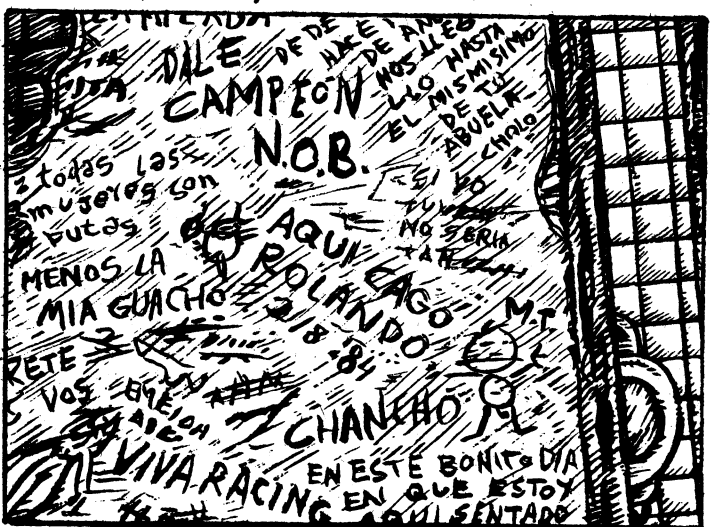 DALE
CAMPEON
N.O.B.
HACE
NOS
HASTA
EL MISMISIMO
DE TU
ABUELA
CHOLO
todas las
mujeres son
putas
MENOS LA
MIA GUACHO
SI YO
NO SERIA
TAN
AQUI CAGO
ROLANDO
2/8-84
M.T.
VOS
CHANCHO
VIVA RACING
EN ESTE BONITO DIA
EN QUE ESTOY
AQUI SENTADO